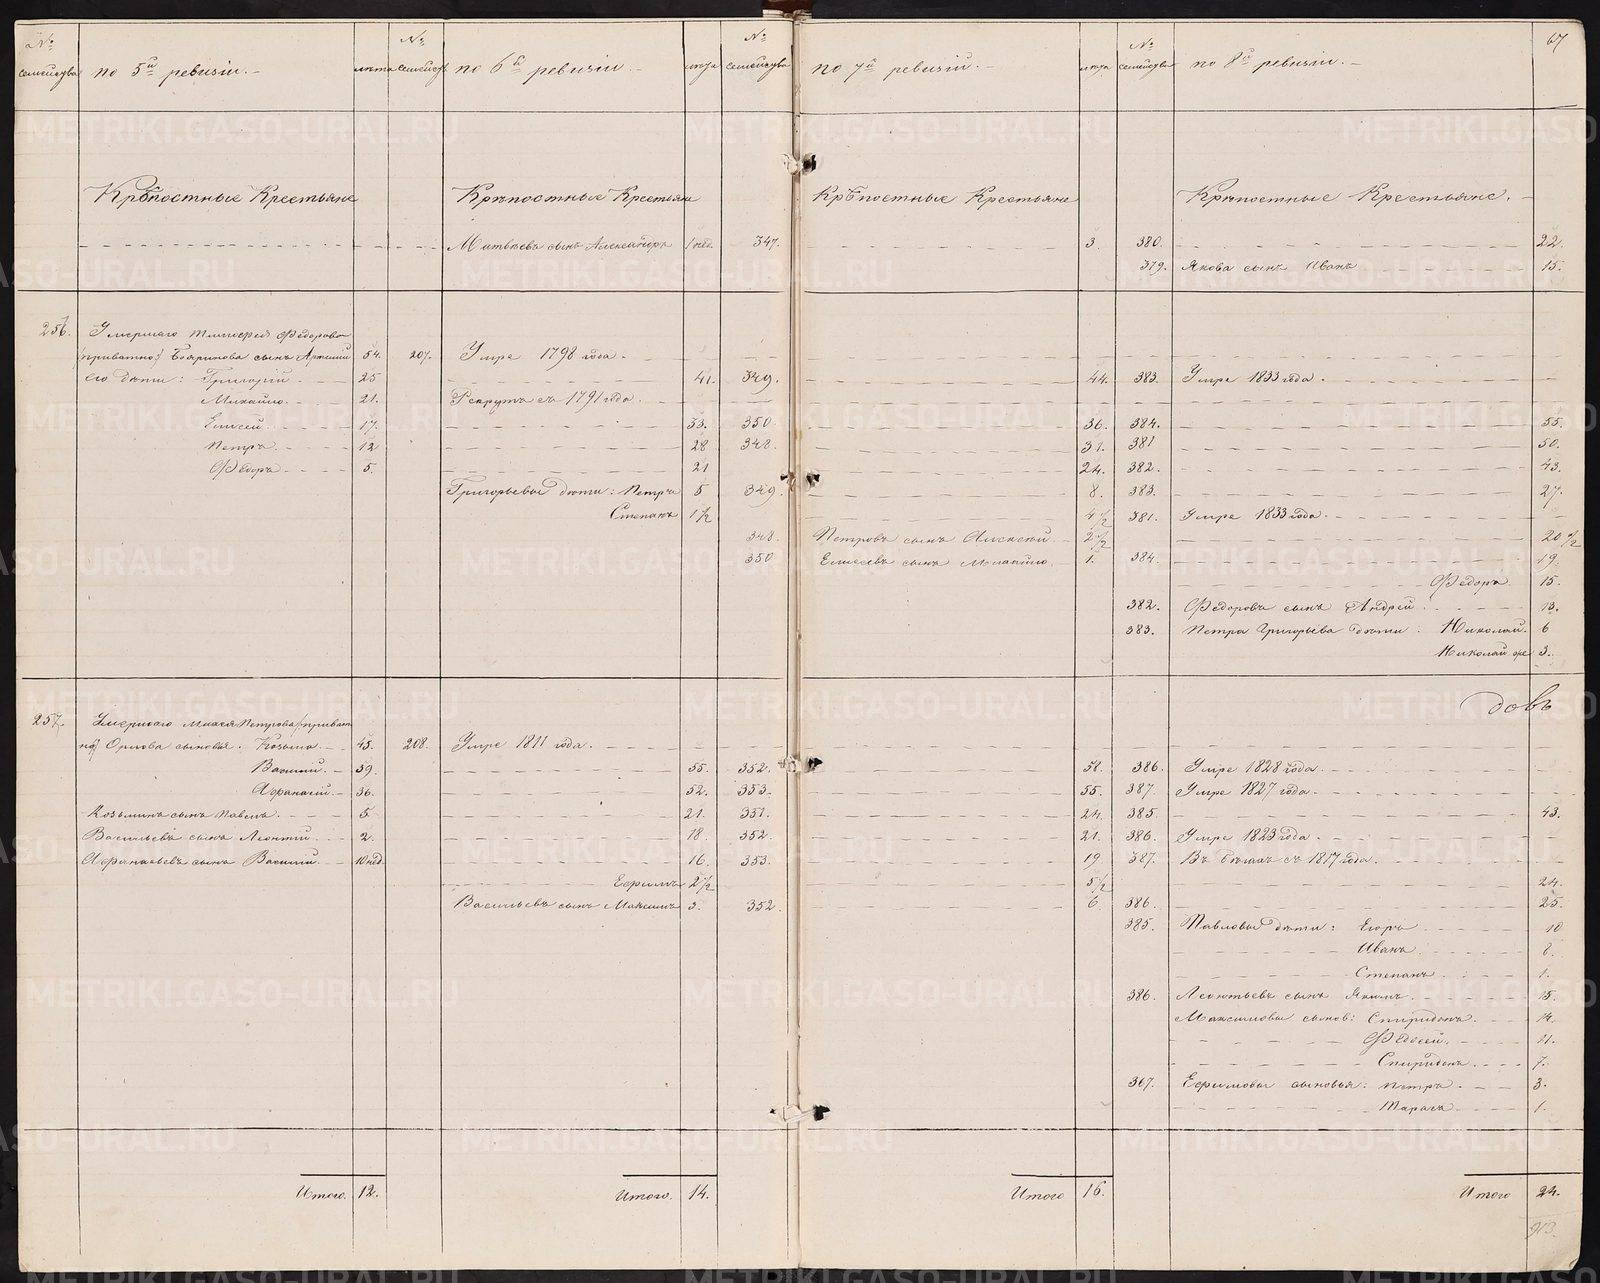 67
№ семейства по 5й ревизіи. лѣта № семейств по 6й ревизіи лѣта № семейства по 7й ревизіи. лѣта № семейства по 8й ревизіи.
Крѣпостные Крестьяне Крѣпостные Крестьяне Крѣпостные Крестьяне Крѣпостные Крестьяне.
Матвѣевъ сынъ Александръ 1 нед. 347. 3. 380. 22.
379. Якова сынъ Иванъ 15.
256. Умершаго Тимофея Ѳедорова
(приватно) Бояринова сынъ Артемій 54. 207. Умре 1798 года.
его дѣти: Григорій 25 41. 349. 44. 383. Умре 1833 года.
Михайло. 21. Рекрутъ съ 1791 года.
Елисей 17. 33. 350 36. 384. 55.
Петръ 12 28 348. 31. 381 50.
Ѳедоръ 5. 21 24. 382. 43.
Григорьевы дѣти: Петръ 5 349. 8. 383. 27.
Степанъ 1 1/2 4 1/2 381. Умре 1833 года.
348. Петровъ сынъ Алексѣй 2 1/2 20 1/2
350 Елисеевъ сынъ Михайло. 1. 384. 19.
Ѳедоръ 15.
382. Ѳедоровъ сынъ Андрей 13.
383. Петра Григорьева дѣти: Николай. 6
Николай же 3.
довъ
257. Умершаго Петрова (приват
но) Орлова сыновья: Козьма 45. 208. Умре 1811 года.
Василій. 39. 55. 352. 58. 386. Умре 1828 года.
Афанасій. 36. 52. 353. 55. 387. Умре 1827 года.
Козьминъ сынъ Павелъ. 5 21. 351. 24. 385. 43.
Васильевъ сынъ Леонтій 2. 18. 352. 21. 386. Умре 1823 года.
Афанасьевъ сынъ Василій. 10 нед. 16. 353. 19. 387. Въ бѣгахъ съ 1817 года.
Ефимъ 2 1/2 5 1/2 24.
Васильевъ сынъ Максимъ 3. 352. 6. 386. 25.
385. Павловы дѣти: Егоръ 10
Иванъ 8.
Степанъ 1.
386. Леонтьевъ сынъ Якимъ. 15.
Максимовы сынов: Спиридонъ. 14.
Ѳедосей. 11.
Спиридонъ 7.
367. Ефимовы сыновья: Петръ 3.
Тарасъ 1.
Итого. 12. Итого. 14. Итого 16. Итого 24.
METRIKI.GASO-URAL.RU